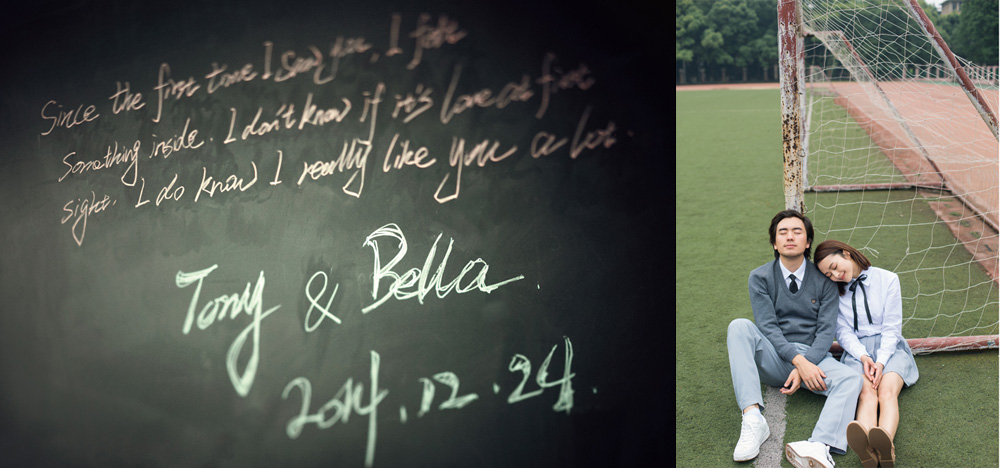 Since the first time I saw you, I fate
Something inside. I don't know if it's love at first
sight. I do know I really like you a lot.
Tony & Bella.
2014.12.24.